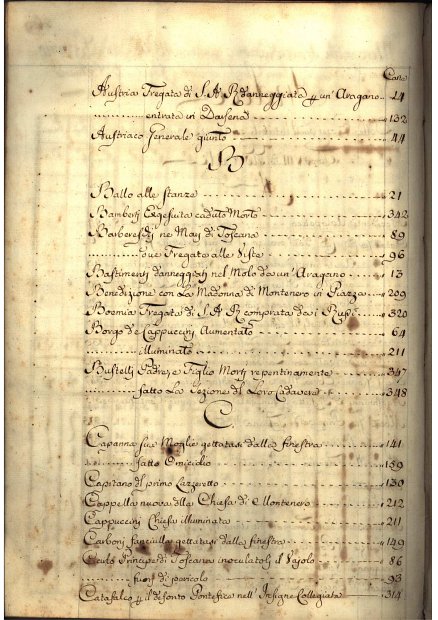 Carta
Austria Fregata di S. A. R. danneggiata p un' Aragano 24
entrata in Darsena 132
Austriaco Generale giunto 44
B
Ballo alle stanze 21
Bambertj Exgesuita caduto Morto 342
Barbereschj ne Marj di Toscana 89
due Fregate alle Viste 96
Bastimenti danneggiati nel Molo da un' Aragano 13
Benedizione con La Madonna di Montenero in Piazza 209
Boemia Fregata di S. A. R. comprata da i Russi 320
Borgo de Cappuccini Aumentato 64
illuminato 211
Bustelli Padre, e Figlio Mortj repentinamente 347
fatto La Sezione del Loro Cadavere 348
C
Capanna sua Moglie gettatasi dalla finestra 141
fatto Omicidio 189
Capitano del primo Lazzeretto 130
Cappella nuova della Chiesa di Montenero 212
Cappuccini Chiesa illuminata 211
Carbonj fanciulla gettatasi dalla finestra 149
Carlo Principe di Toscana inoculatolj il Vajolo 86
fuori di pericolo 93
Catafalco p il difonto Pontefice nell' Insigne Collegiata 314